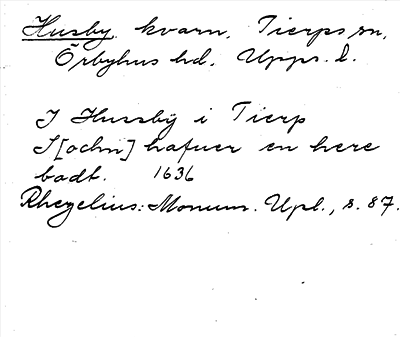 Husby kvarn, Tierps sn,
Örbyhus hd, Upps. l.
I Hussbÿ i Tierp
S[ochn] hafuer en here
bodt. 1636
Rhezelius: Monum. Upl., s. 87.